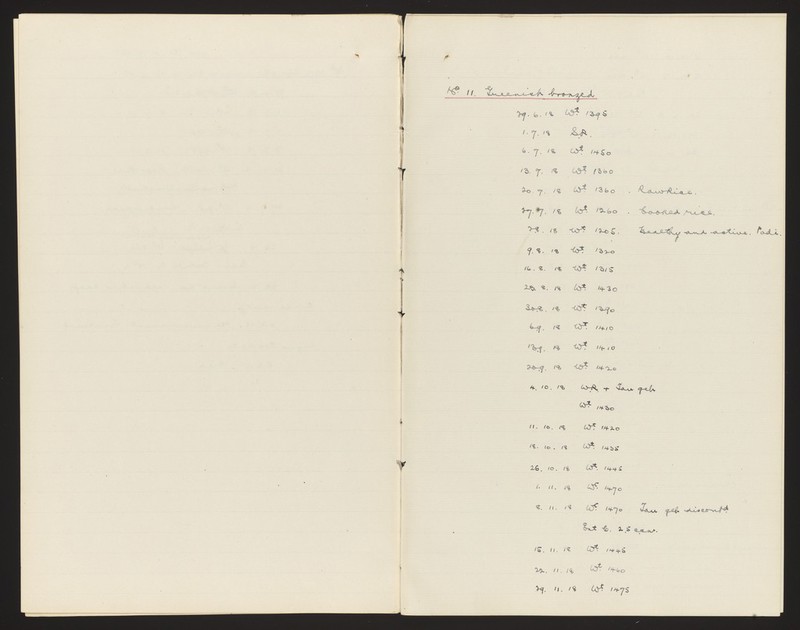 No 11. Greenish bronzed
29. 6. 18 Wt. 1395
1. 7. 18 S.R.
6. 7. 18 Wt. 1450
13. 7. 18 Wt. 1360
20. 7. 18 Wt. 1360. Raw Rice.
27. 7. 18 Wt. 1260. Cooked rice.
2. 8. 18 Wt. 1205. Healthy and active. Padi.
9. 8. 18 Wt. 1320
16. 8. 18 Wt. 1315
8. 18 Wt. 1430
30. 8. 18 Wt. 1390
6. 9. 18 Wt. 1410
13. 9. 18 Wt. 1410
20. 9. 18 Wt. 1420
4. 10. 18 W.R +
Wt. 1430
11. 10. 18 Wt. 1420
18. 10. 18 Wt. 1435
25. 10. 18 Wt. 1445
1. 11. 18 Wt. 1470
8. 11. 18 Wt. 1470
15. 11. 18 Wt. 1445
22. 11. 18 Wt. 1440
29. 11. 18 Wt. 1475